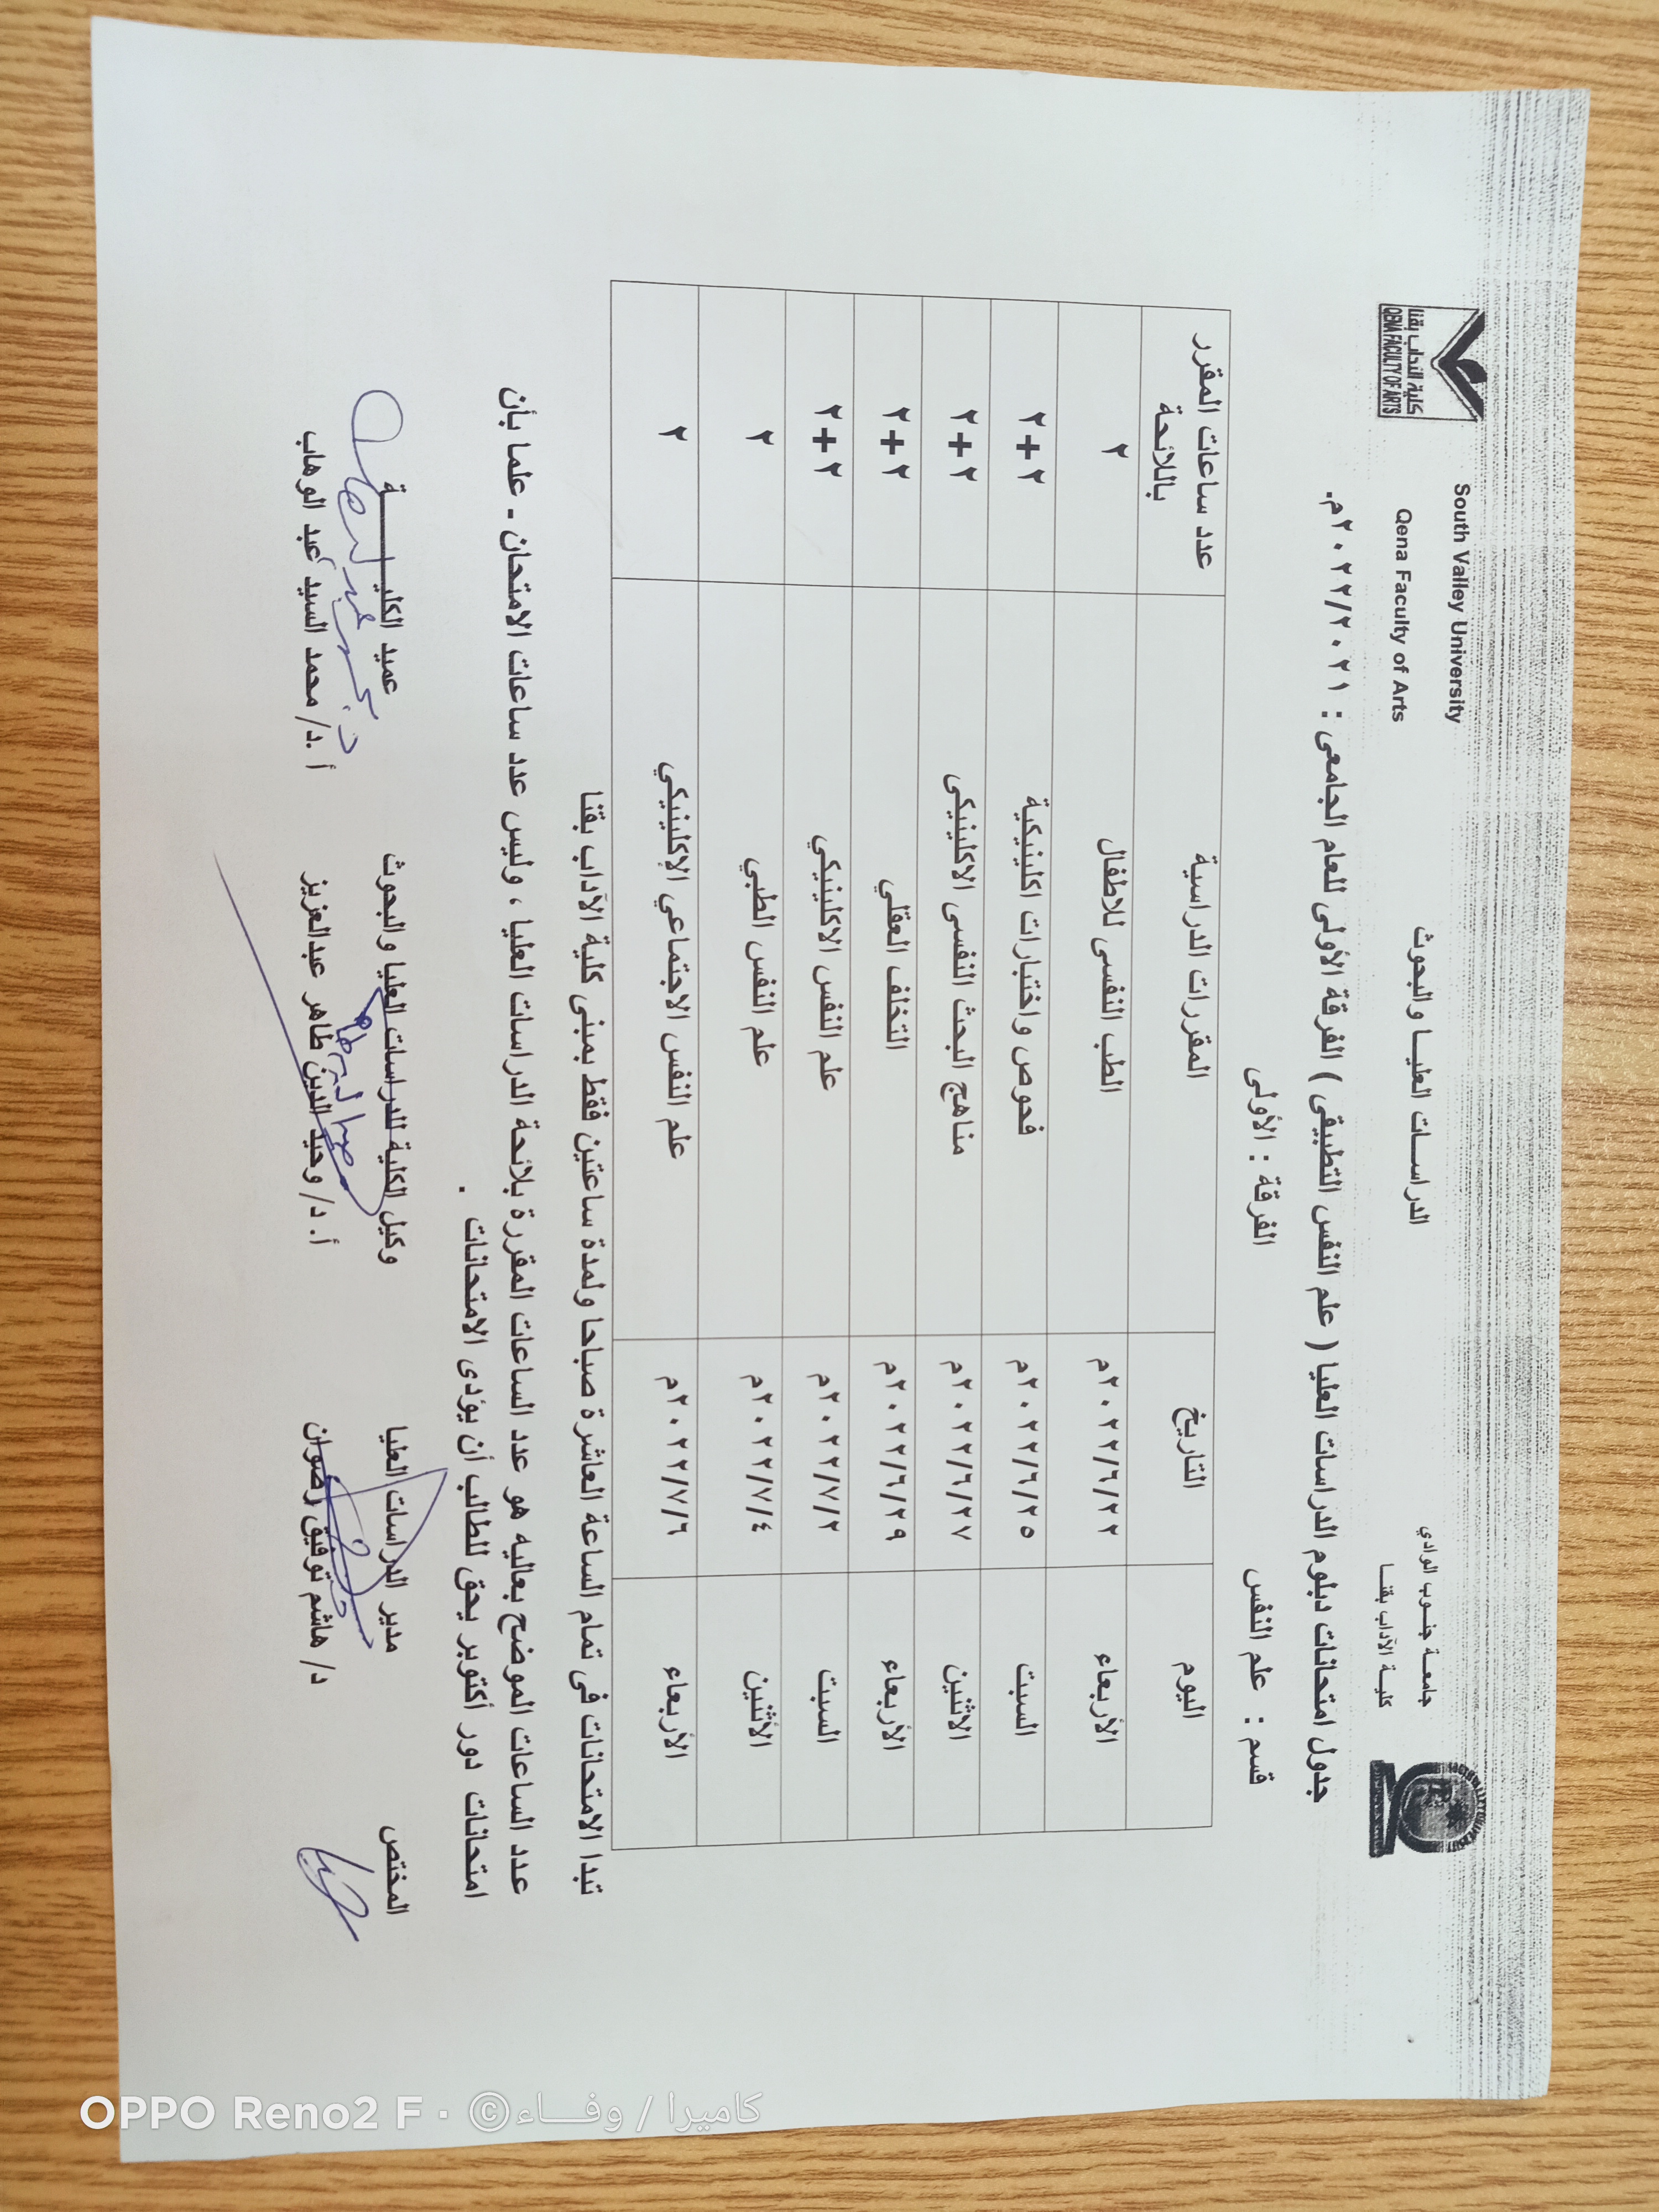 جامعة جنوب الوادي
كلية الآداب بقنا
الدراسات العليا والبحوث
South Valley University
Qena Faculty of Arts
كلية الآداب بقنا
QENA FACULTY OF ARTS
جدول امتحانات دبلوم الدراسات العليا ( علم النفس التطبيقى ) الفرقة الأولى للعام الجامعى : ٢٠٢٢/٢٠٢١م.
قسم : علم النفس الفرقة : الأولى
اليوم التاريخ المقررات الدراسية عدد ساعات المقرر باللائحة
الأربعاء ٢٠٢٢/٦/٢٢م الطب النفسى للاطفال ٢
السبت ٢٠٢٢/٦/٢٥م فحوص واختبارات اكلينيكية ٢+٢
الاثنين ٢٠٢٢/٦/٢٧م مناهج البحث النفسى الاكلينيكى ٢+٢
الأربعاء ٢٠٢٢/٦/٢٩م التخلف العقلي ٢+٢
السبت ٢٠٢٢/٧/٢م علم النفس الاكلينيكي ٢+٢
الأثنين ٢٠٢٢/٧/٤م علم النفس الطبي ٢
الأربعاء ٢٠٢٢/٧/٦م علم النفس الاجتماعي الإكلينيكي ٢
تبدا الامتحانات فى تمام الساعة العاشرة صباحا ولمدة ساعتين فقط بمبنى كلية الآداب بقنا
عدد الساعات الموضح بعاليه هو عدد الساعات المقررة بلائحة الدراسات العليا ، وليس عدد ساعات الامتحان - علما بأن
امتحانات دور أكتوبر يحق للطالب أن يؤدى الامتحانات .
المختص مدير الدراسات العليا وكيل الكلية للدراسات العليا والبحوث عميد الكليـــــة
د/ هاشم توفيق رضوان أ. د/ وحيد الدين طاهر عبدالعزيز أ .د/ محمد السيد عبد الوهاب
OPPO Reno2 F · ©كاميرا / وفـــاء